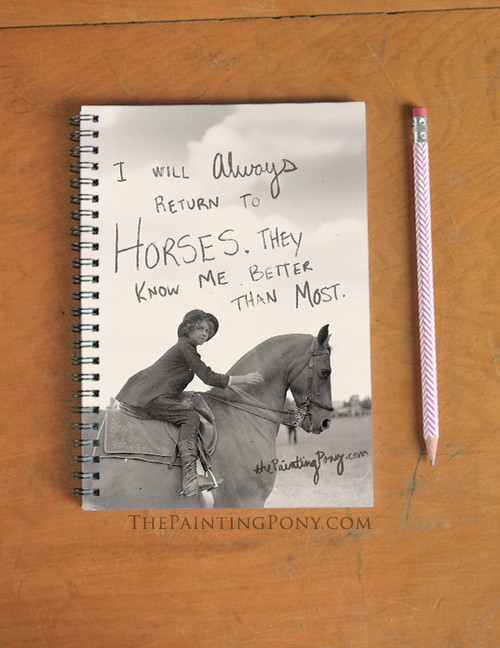 I WILL Always
RETURN TO
HORSES. THEY
KNOW ME BETTER
THAN MOST.
thePaintingPony.com
THEPAINTINGPONY.COM